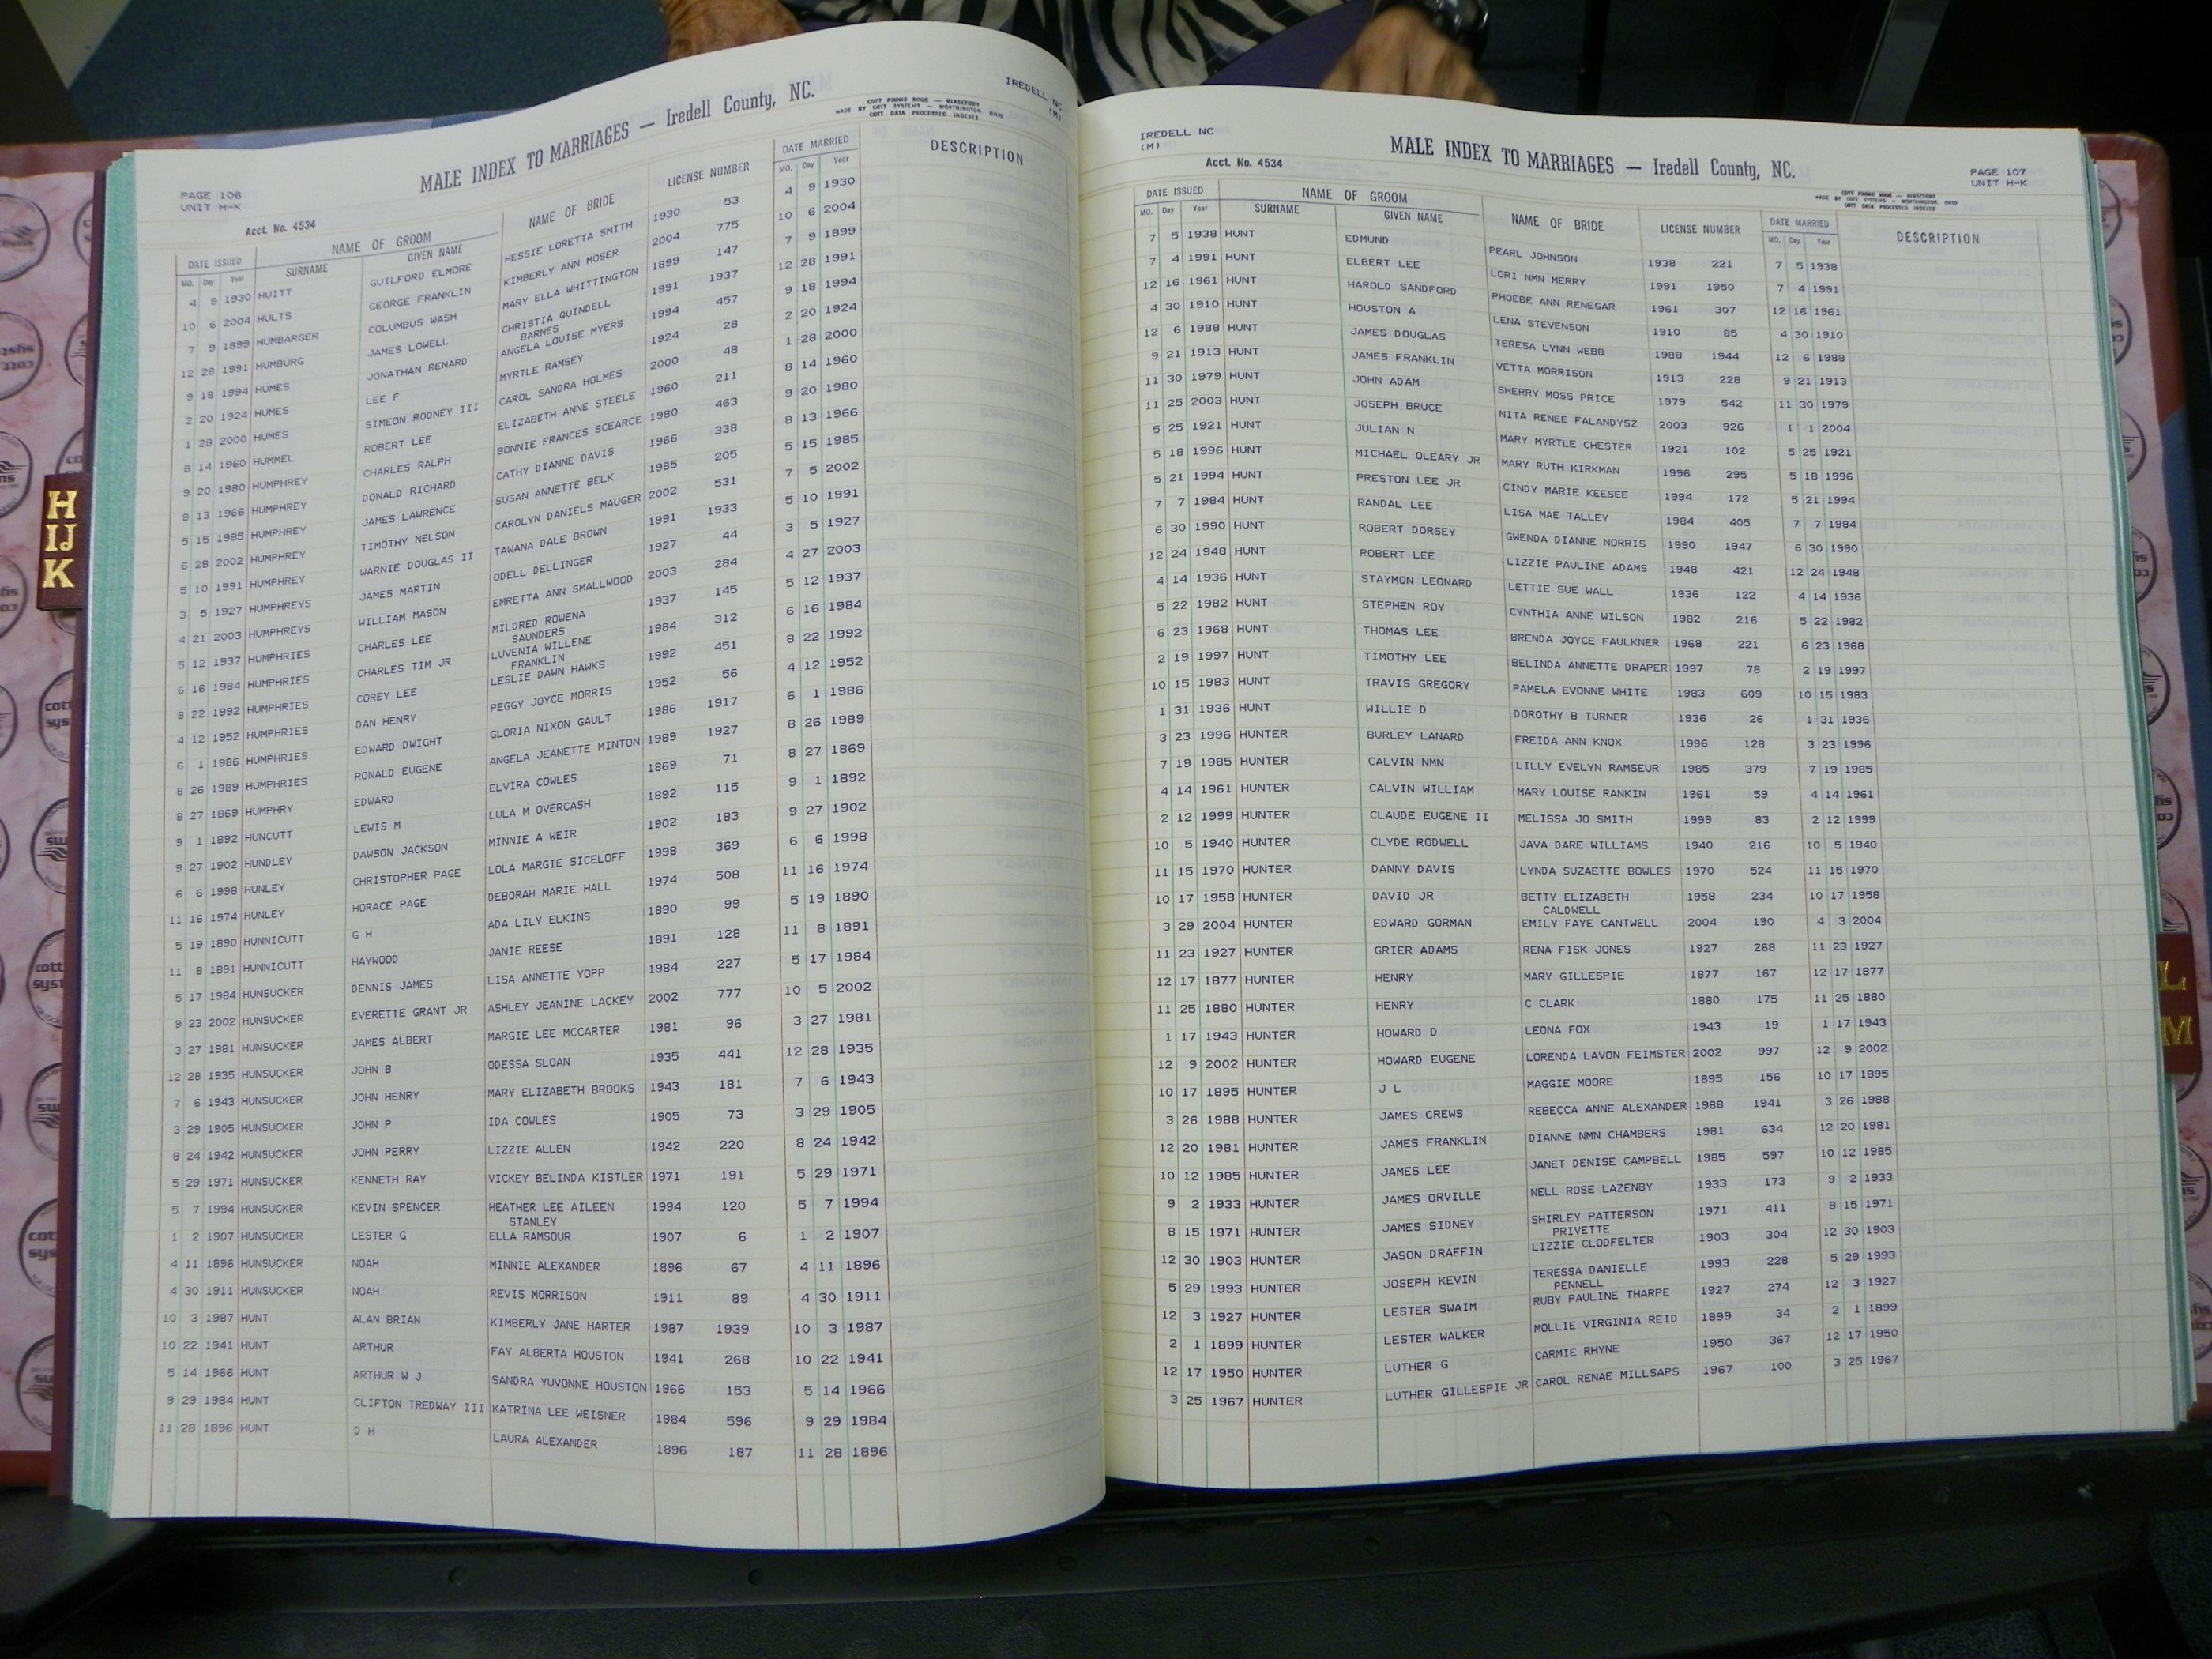 IREDELL NC
(M)
MALE INDEX TO MARRIAGES — Iredell County, NC.
COTT PHONE BOOK — DIRECTORY
MADE BY COTT SYSTEMS — WORTHINGTON OHIO
COTT DATA PROCESSED INDEXES
PAGE 106
UNIT H-K
Acct. No. 4534
DATE ISSUED NAME OF GROOM NAME OF BRIDE LICENSE NUMBER DATE MARRIED DESCRIPTION
MO. Day Year SURNAME GIVEN NAME MO. Day Year
4 9 1930 HUITT GUILFORD ELMORE HESSIE LORETTA SMITH 1930 53 4 9 1930
10 6 2004 HULTS GEORGE FRANKLIN KIMBERLY ANN MOSER 2004 775 10 6 2004
7 9 1899 HUMBARGER COLUMBUS WASH MARY ELLA WHITTINGTON 1899 147 7 9 1899
12 28 1991 HUMBURG JAMES LOWELL CHRISTIA QUINDELL 1991 1937 12 28 1991
BARNES
9 18 1994 HUMES JONATHAN RENARD ANGELA LOUISE MYERS 1994 457 9 18 1994
2 20 1924 HUMES LEE F MYRTLE RAMSEY 1924 28 2 20 1924
1 28 2000 HUMES SIMEON RODNEY III CAROL SANDRA HOLMES 2000 48 1 28 2000
8 14 1960 HUMMEL ROBERT LEE ELIZABETH ANNE STEELE 1960 211 8 14 1960
9 20 1980 HUMPHREY CHARLES RALPH BONNIE FRANCES SCEARCE 1980 463 9 20 1980
8 13 1966 HUMPHREY DONALD RICHARD CATHY DIANNE DAVIS 1966 338 8 13 1966
5 15 1985 HUMPHREY JAMES LAWRENCE SUSAN ANNETTE BELK 1985 205 5 15 1985
6 28 2002 HUMPHREY TIMOTHY NELSON CAROLYN DANIELS MAUGER 2002 531 7 5 2002
5 10 1991 HUMPHREY WARNIE DOUGLAS II TAWANA DALE BROWN 1991 1933 5 10 1991
3 5 1927 HUMPHREYS JAMES MARTIN ODELL DELLINGER 1927 44 3 5 1927
4 21 2003 HUMPHREYS WILLIAM MASON EMRETTA ANN SMALLWOOD 2003 284 4 27 2003
5 12 1937 HUMPHRIES CHARLES LEE MILDRED ROWENA 1937 145 5 12 1937
SAUNDERS
6 16 1984 HUMPHRIES CHARLES TIM JR LUVENIA WILLENE 1984 312 6 16 1984
FRANKLIN
8 22 1992 HUMPHRIES COREY LEE LESLIE DAWN HAWKS 1992 451 8 22 1992
4 12 1952 HUMPHRIES DAN HENRY PEGGY JOYCE MORRIS 1952 56 4 12 1952
6 1 1986 HUMPHRIES EDWARD DWIGHT GLORIA NIXON GAULT 1986 1917 6 1 1986
8 26 1989 HUMPHRIES RONALD EUGENE ANGELA JEANETTE MINTON 1989 1927 8 26 1989
8 27 1869 HUMPHRY EDWARD ELVIRA COWLES 1869 71 8 27 1869
9 1 1892 HUNCUTT LEWIS M LULA M OVERCASH 1892 115 9 1 1892
9 27 1902 HUNDLEY DAWSON JACKSON MINNIE A WEIR 1902 183 9 27 1902
6 6 1998 HUNLEY CHRISTOPHER PAGE LOLA MARGIE SICELOFF 1998 369 6 6 1998
11 16 1974 HUNLEY HORACE PAGE DEBORAH MARIE HALL 1974 508 11 16 1974
5 19 1890 HUNNICUTT G H ADA LILY ELKINS 1890 99 5 19 1890
11 8 1891 HUNNICUTT HAYWOOD JANIE REESE 1891 128 11 8 1891
5 17 1984 HUNSUCKER DENNIS JAMES LISA ANNETTE YOPP 1984 227 5 17 1984
9 23 2002 HUNSUCKER EVERETTE GRANT JR ASHLEY JEANINE LACKEY 2002 777 10 5 2002
3 27 1981 HUNSUCKER JAMES ALBERT MARGIE LEE MCCARTER 1981 96 3 27 1981
12 28 1935 HUNSUCKER JOHN B ODESSA SLOAN 1935 441 12 28 1935
7 6 1943 HUNSUCKER JOHN HENRY MARY ELIZABETH BROOKS 1943 181 7 6 1943
3 29 1905 HUNSUCKER JOHN P IDA COWLES 1905 73 3 29 1905
8 24 1942 HUNSUCKER JOHN PERRY LIZZIE ALLEN 1942 220 8 24 1942
5 29 1971 HUNSUCKER KENNETH RAY VICKEY BELINDA KISTLER 1971 191 5 29 1971
5 7 1994 HUNSUCKER KEVIN SPENCER HEATHER LEE AILEEN 1994 120 5 7 1994
STANLEY
1 2 1907 HUNSUCKER LESTER G ELLA RAMSOUR 1907 6 1 2 1907
4 11 1896 HUNSUCKER NOAH MINNIE ALEXANDER 1896 67 4 11 1896
4 30 1911 HUNSUCKER NOAH REVIS MORRISON 1911 89 4 30 1911
10 3 1987 HUNT ALAN BRIAN KIMBERLY JANE HARTER 1987 1939 10 3 1987
10 22 1941 HUNT ARTHUR FAY ALBERTA HOUSTON 1941 268 10 22 1941
5 14 1966 HUNT ARTHUR W J SANDRA YUVONNE HOUSTON 1966 153 5 14 1966
9 29 1984 HUNT CLIFTON TREDWAY III KATRINA LEE WEISNER 1984 596 9 29 1984
11 28 1896 HUNT D H LAURA ALEXANDER 1896 187 11 28 1896
IREDELL NC
(M)
Acct. No. 4534
MALE INDEX TO MARRIAGES — Iredell County, NC.
PAGE 107
UNIT H-K
COTT PHONE BOOK — DIRECTORY
MADE BY COTT SYSTEMS — WORTHINGTON OHIO
COTT DATA PROCESSED INDEXES
DATE ISSUED NAME OF GROOM NAME OF BRIDE LICENSE NUMBER DATE MARRIED DESCRIPTION
MO. Day Year SURNAME GIVEN NAME MO. Day Year
7 5 1938 HUNT EDMUND PEARL JOHNSON 1938 221 7 5 1938
7 4 1991 HUNT ELBERT LEE LORI NMN MERRY 1991 1950 7 4 1991
12 16 1961 HUNT HAROLD SANDFORD PHOEBE ANN RENEGAR 1961 307 12 16 1961
4 30 1910 HUNT HOUSTON A LENA STEVENSON 1910 85 4 30 1910
12 6 1988 HUNT JAMES DOUGLAS TERESA LYNN WEBB 1988 1944 12 6 1988
9 21 1913 HUNT JAMES FRANKLIN VETTA MORRISON 1913 228 9 21 1913
11 30 1979 HUNT JOHN ADAM SHERRY MOSS PRICE 1979 542 11 30 1979
11 25 2003 HUNT JOSEPH BRUCE NITA RENEE FALANDYSZ 2003 926 1 1 2004
5 25 1921 HUNT JULIAN N MARY MYRTLE CHESTER 1921 102 5 25 1921
5 18 1996 HUNT MICHAEL OLEARY JR MARY RUTH KIRKMAN 1996 295 5 18 1996
5 21 1994 HUNT PRESTON LEE JR CINDY MARIE KEESEE 1994 172 5 21 1994
7 7 1984 HUNT RANDAL LEE LISA MAE TALLEY 1984 405 7 7 1984
6 30 1990 HUNT ROBERT DORSEY GWENDA DIANNE NORRIS 1990 1947 6 30 1990
12 24 1948 HUNT ROBERT LEE LIZZIE PAULINE ADAMS 1948 421 12 24 1948
4 14 1936 HUNT STAYMON LEONARD LETTIE SUE WALL 1936 122 4 14 1936
5 22 1982 HUNT STEPHEN ROY CYNTHIA ANNE WILSON 1982 216 5 22 1982
6 23 1968 HUNT THOMAS LEE BRENDA JOYCE FAULKNER 1968 221 6 23 1968
2 19 1997 HUNT TIMOTHY LEE BELINDA ANNETTE DRAPER 1997 78 2 19 1997
10 15 1983 HUNT TRAVIS GREGORY PAMELA EVONNE WHITE 1983 609 10 15 1983
1 31 1936 HUNT WILLIE D DOROTHY B TURNER 1936 26 1 31 1936
3 23 1996 HUNTER BURLEY LANARD FREIDA ANN KNOX 1996 128 3 23 1996
7 19 1985 HUNTER CALVIN NMN LILLY EVELYN RAMSEUR 1985 379 7 19 1985
4 14 1961 HUNTER CALVIN WILLIAM MARY LOUISE RANKIN 1961 59 4 14 1961
2 12 1999 HUNTER CLAUDE EUGENE II MELISSA JO SMITH 1999 83 2 12 1999
10 5 1940 HUNTER CLYDE RODWELL JAVA DARE WILLIAMS 1940 216 10 5 1940
11 15 1970 HUNTER DANNY DAVIS LYNDA SUZAETTE BOWLES 1970 524 11 15 1970
10 17 1958 HUNTER DAVID JR BETTY ELIZABETH 1958 234 10 17 1958
CALDWELL
3 29 2004 HUNTER EDWARD GORMAN EMILY FAYE CANTWELL 2004 190 4 3 2004
11 23 1927 HUNTER GRIER ADAMS RENA FISK JONES 1927 268 11 23 1927
12 17 1877 HUNTER HENRY MARY GILLESPIE 1877 167 12 17 1877
11 25 1880 HUNTER HENRY C CLARK 1880 175 11 25 1880
1 17 1943 HUNTER HOWARD D LEONA FOX 1943 19 1 17 1943
12 9 2002 HUNTER HOWARD EUGENE LORENDA LAVON FEIMSTER 2002 997 12 9 2002
10 17 1895 HUNTER J L MAGGIE MOORE 1895 156 10 17 1895
3 26 1988 HUNTER JAMES CREWS REBECCA ANNE ALEXANDER 1988 1941 3 26 1988
12 20 1981 HUNTER JAMES FRANKLIN DIANNE NMN CHAMBERS 1981 634 12 20 1981
10 12 1985 HUNTER JAMES LEE JANET DENISE CAMPBELL 1985 597 10 12 1985
9 2 1933 HUNTER JAMES ORVILLE NELL ROSE LAZENBY 1933 173 9 2 1933
8 15 1971 HUNTER JAMES SIDNEY SHIRLEY PATTERSON 1971 411 8 15 1971
PRIVETTE
12 30 1903 HUNTER JASON DRAFFIN LIZZIE CLODFELTER 1903 304 12 30 1903
5 29 1993 HUNTER JOSEPH KEVIN TERESSA DANIELLE 1993 228 5 29 1993
PENNELL
12 3 1927 HUNTER LESTER SWAIM RUBY PAULINE THARPE 1927 274 12 3 1927
2 1 1899 HUNTER LESTER WALKER MOLLIE VIRGINIA REID 1899 34 2 1 1899
12 17 1950 HUNTER LUTHER G CARMIE RHYNE 1950 367 12 17 1950
3 25 1967 HUNTER LUTHER GILLESPIE JR CAROL RENAE MILLSAPS 1967 100 3 25 1967
H
IJ
K
L
M